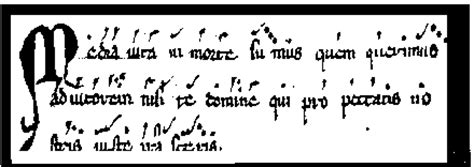 Media uita in morte su mus quem querimus
adiutorem nisi te domine qui pro peccatis no
stris iuste irasceris